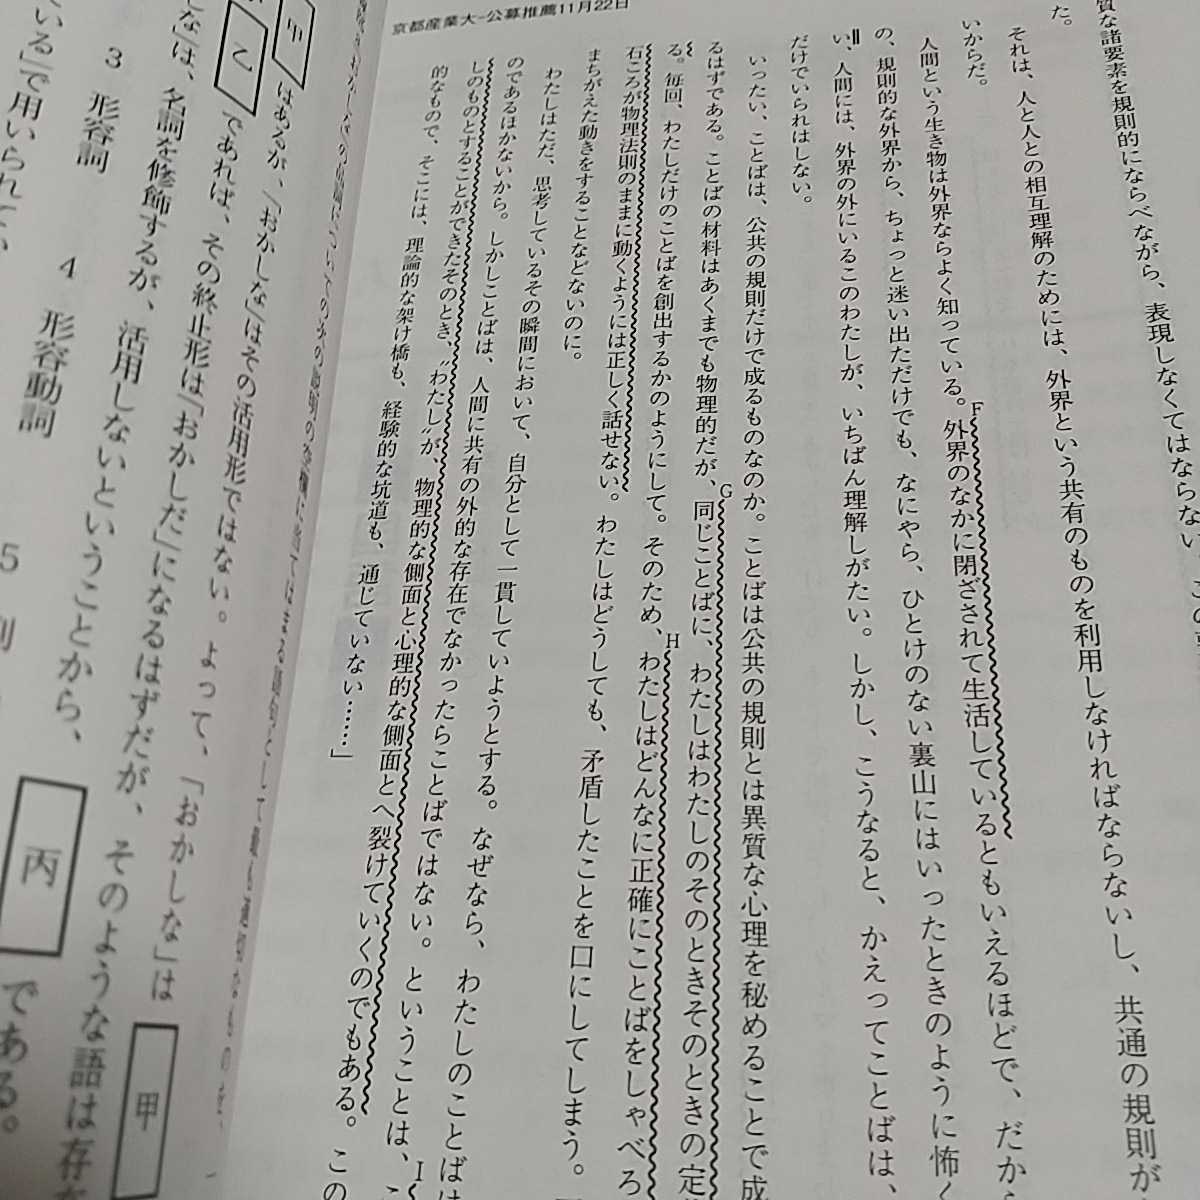 京都産業大-公募推薦11月22日
質な諸要素を規則的にならべながら、表現しなくてはならない。この
た。
それは、人と人との相互理解のためには、外界という共有のものを利用しなければならないし、共通の規則が
いからだ。
人間という生き物は外界ならよく知っている。外界のなかに閉ざされて生活しているともいえるほどで、だか
F
の、規則的な外界から、ちょっと迷い出ただけでも、なにやら、ひとけのない裏山にはいったときのように怖く
い、人間には、外界の外にいるこのわたしが、いちばん理解しがたい。しかし、こうなると、かえってことばは、
だけでいられはしない。
いったい、ことばは、公共の規則だけで成るものなのか。ことばは公共の規則とは異質な心理を秘めることで成
るはずである。ことばの材料はあくまでも物理的だが、同じことばに、わたしはわたしのそのときそのときの定
G
る。毎回、わたしだけのことばを創出するかのようにして。そのため、わたしはどんなに正確にことばをしゃべろ
H
石ころが物理法則のままに動くようには正しく話せない。わたしはどうしても、矛盾したことを口にしてしまう。
まちがえた動きをすることなどないのに。
わたしはただ、思考しているその瞬間において、自分として一貫していようとする。なぜなら、わたしのことば
のであるほかないから。しかしことばは、人間に共有の外的な存在でなかったらことばではない。ということは、
しのものとすることができたそのとき、〝わたし〟が、物理的な側面と心理的な側面とへ裂けていくのでもある。この
I
的なもので、そこには、理論的な架け橋も、経験的な坑道も、通じていない……」
甲
はあるが、「おかしな」はその活用形ではない。よって、「おかしな」は
甲
乙
であれば、その終止形は「おかしだ」になるはずだが、そのような語は存
しな」は、名詞を修飾するが、活用しないということから、
丙
である。
ている」で用いられてい
3 形容詞
4 形容動詞
5